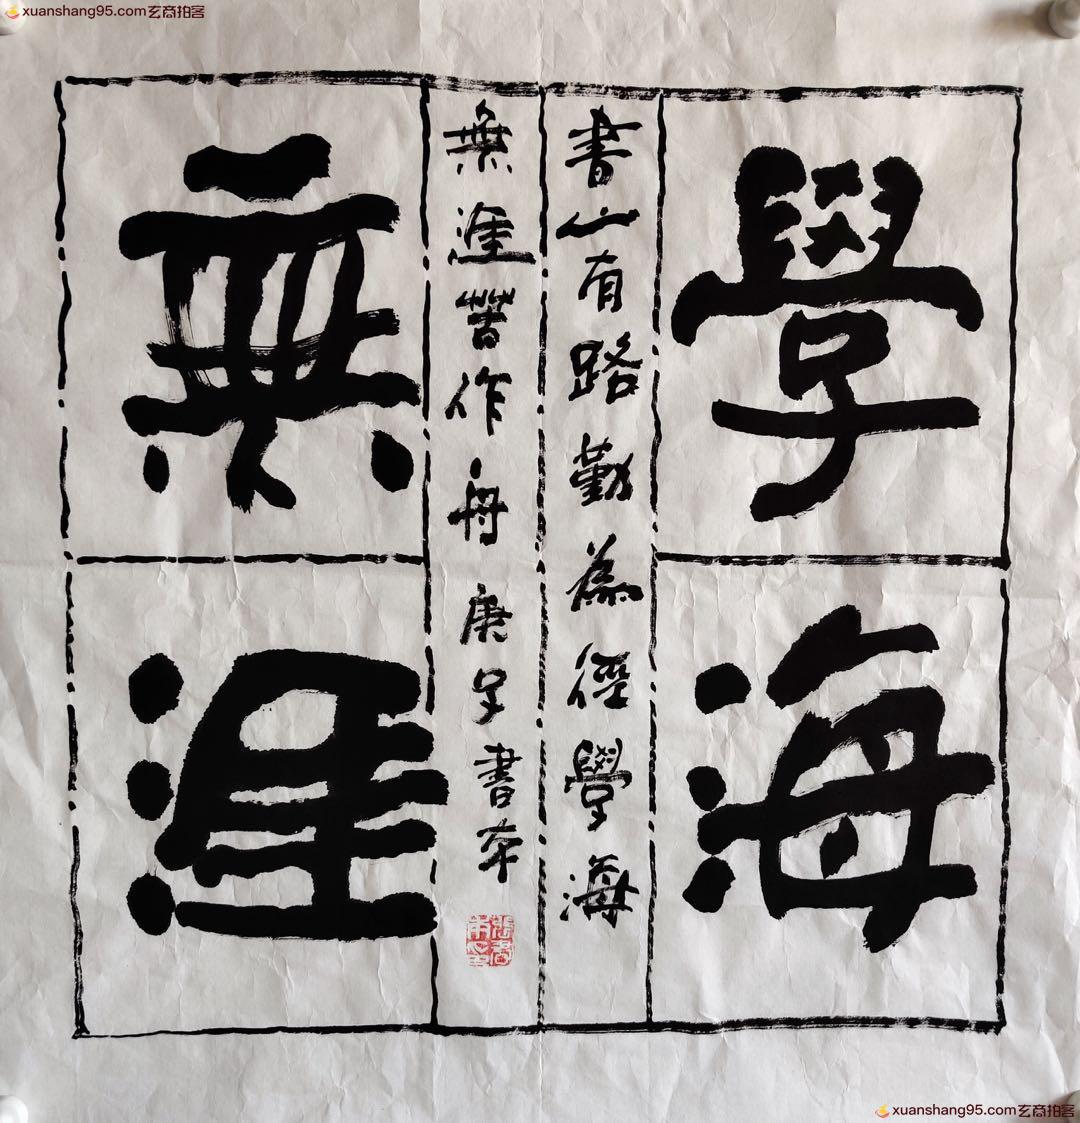 xuanshang95.com玄商拍客
學海
無涯
書山有路勤為徑學海
無涯苦作舟庚子書本
xuanshang95.com玄商拍客